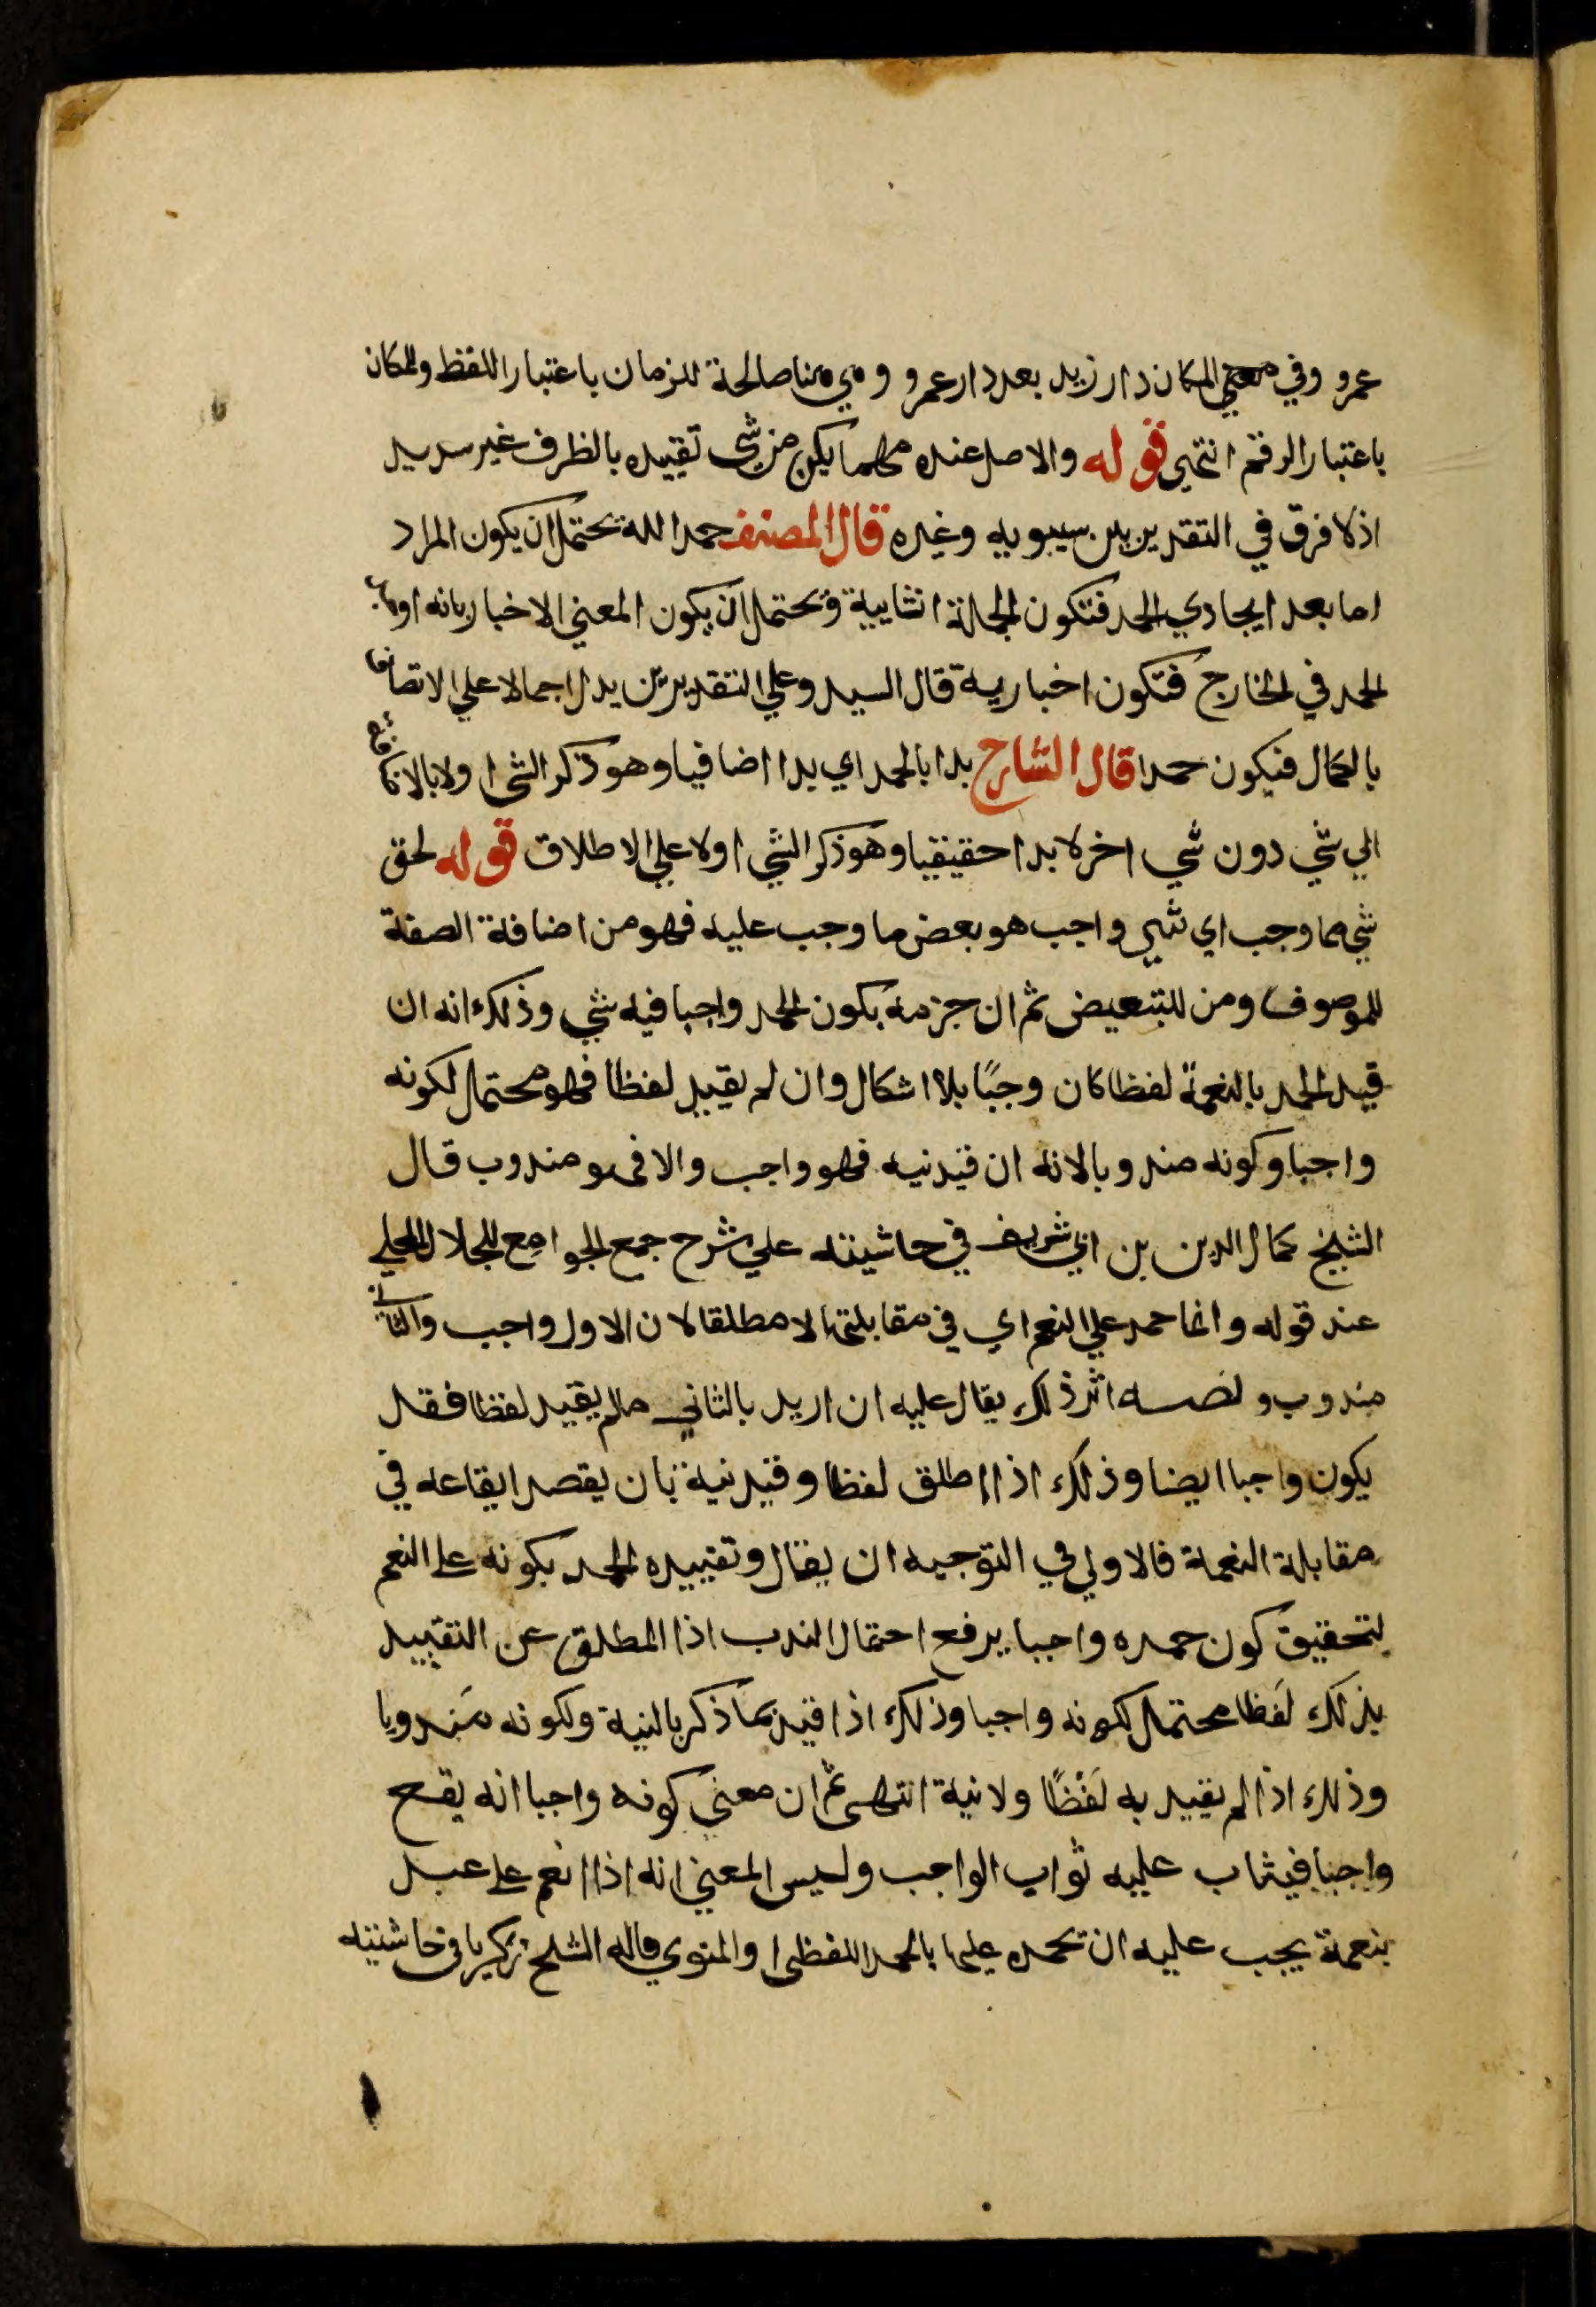 عمرو وفي معني المكان دار زيد بعد دار عمرو وهي هنا صالحة للزمان باعتبار اللفظ والمكان
باعتبار الرقم انتهي قوله والاصل عنده مهما يكن من شي تقييده بالظرف غير سديد
اذ لا فرق في التقدير بين سيبويه وغيره قال المصنف حمد الله يحتمل ان يكون المراد
اما بعد ايجادي الحمد فتكون الجملة انشايية ويحتمل ان يكون المعني الاخبار بانه
الحمد في الخارج فتكون اخبارية قال السيد وعلي التقديرين يدل اجمالا علي الاتصاف
بالكمال فيكون حمدا قال الشارح بدا بالحمد اي بدا اضافيا وهو ذكر الشي اولا بالاضافة
الي شي دون شي اخر لا بدا حقيقيا وهو ذكر الشي اولا علي الاطلاق قوله لحق
شي مما وجب اي شي واجب هو بعض ما وجب عليه فهو من اضافة الصفة
للموصوف ومن للتبعيض ثم ان جزمه بكون الحمد واجبا فيه شي وذلك انه ان
قيد الحمد بالنعمة لفظا كان وجبًا بلا اشكال وان لم يقيد لفظا فهو محتمل لكونه
واجبا وكونه مندوبا لانه ان قيد نيه فهو واجب والا فهو مندوب قال
الشيخ كمال الدين بن ابي شريف في حاشيته علي شرح جمع الجوامع للجلال المحلي
عند قوله وانما حمد علي النعم اي في مقابلتها لا مطلقا لان الاول واجب والثاني
مندوب ولفصه اثر ذلك يقال عليه ان اريد بالثاني مالم يقيد لفظا فقد
يكون واجبا ايضا وذلك اذا اطلق لفظا وقيد نية بان يقصد ايقاعه في
مقابلة النعمة فالاولي في التوجيه ان يقال وتقييده الحمد بكونه علي النعم
لتحقيق كون حمده واجبا يرفع احتمال الندب اذا المطلق عن التقييد
بذلك لفظا محتمل لكونه واجبا وذلك اذا قيد بما ذكر بالنية ولكونه مندوبا
وذلك اذا لم يقيد به لفظًا ولا نية انتهى ثم ان معني كونه واجبا انه يقع
واجبا فيثاب عليه ثواب الواجب وليس المعني انه اذا انعم علي عبد
بنعمة يجب عليه ان يحمده عليها بالحمد اللفظي او المنوي قاله الشيخ زكريا في حاشيته